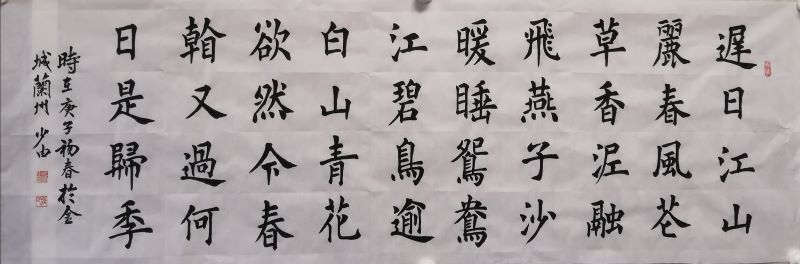 遲日江山
麗春風花
草香泥融
飛燕子沙
暖睡鴛鴦
江碧鳥逾
白山青花
欲然今春
翰又過何
日是歸季
時在庚子初春於金
城蘭州少由